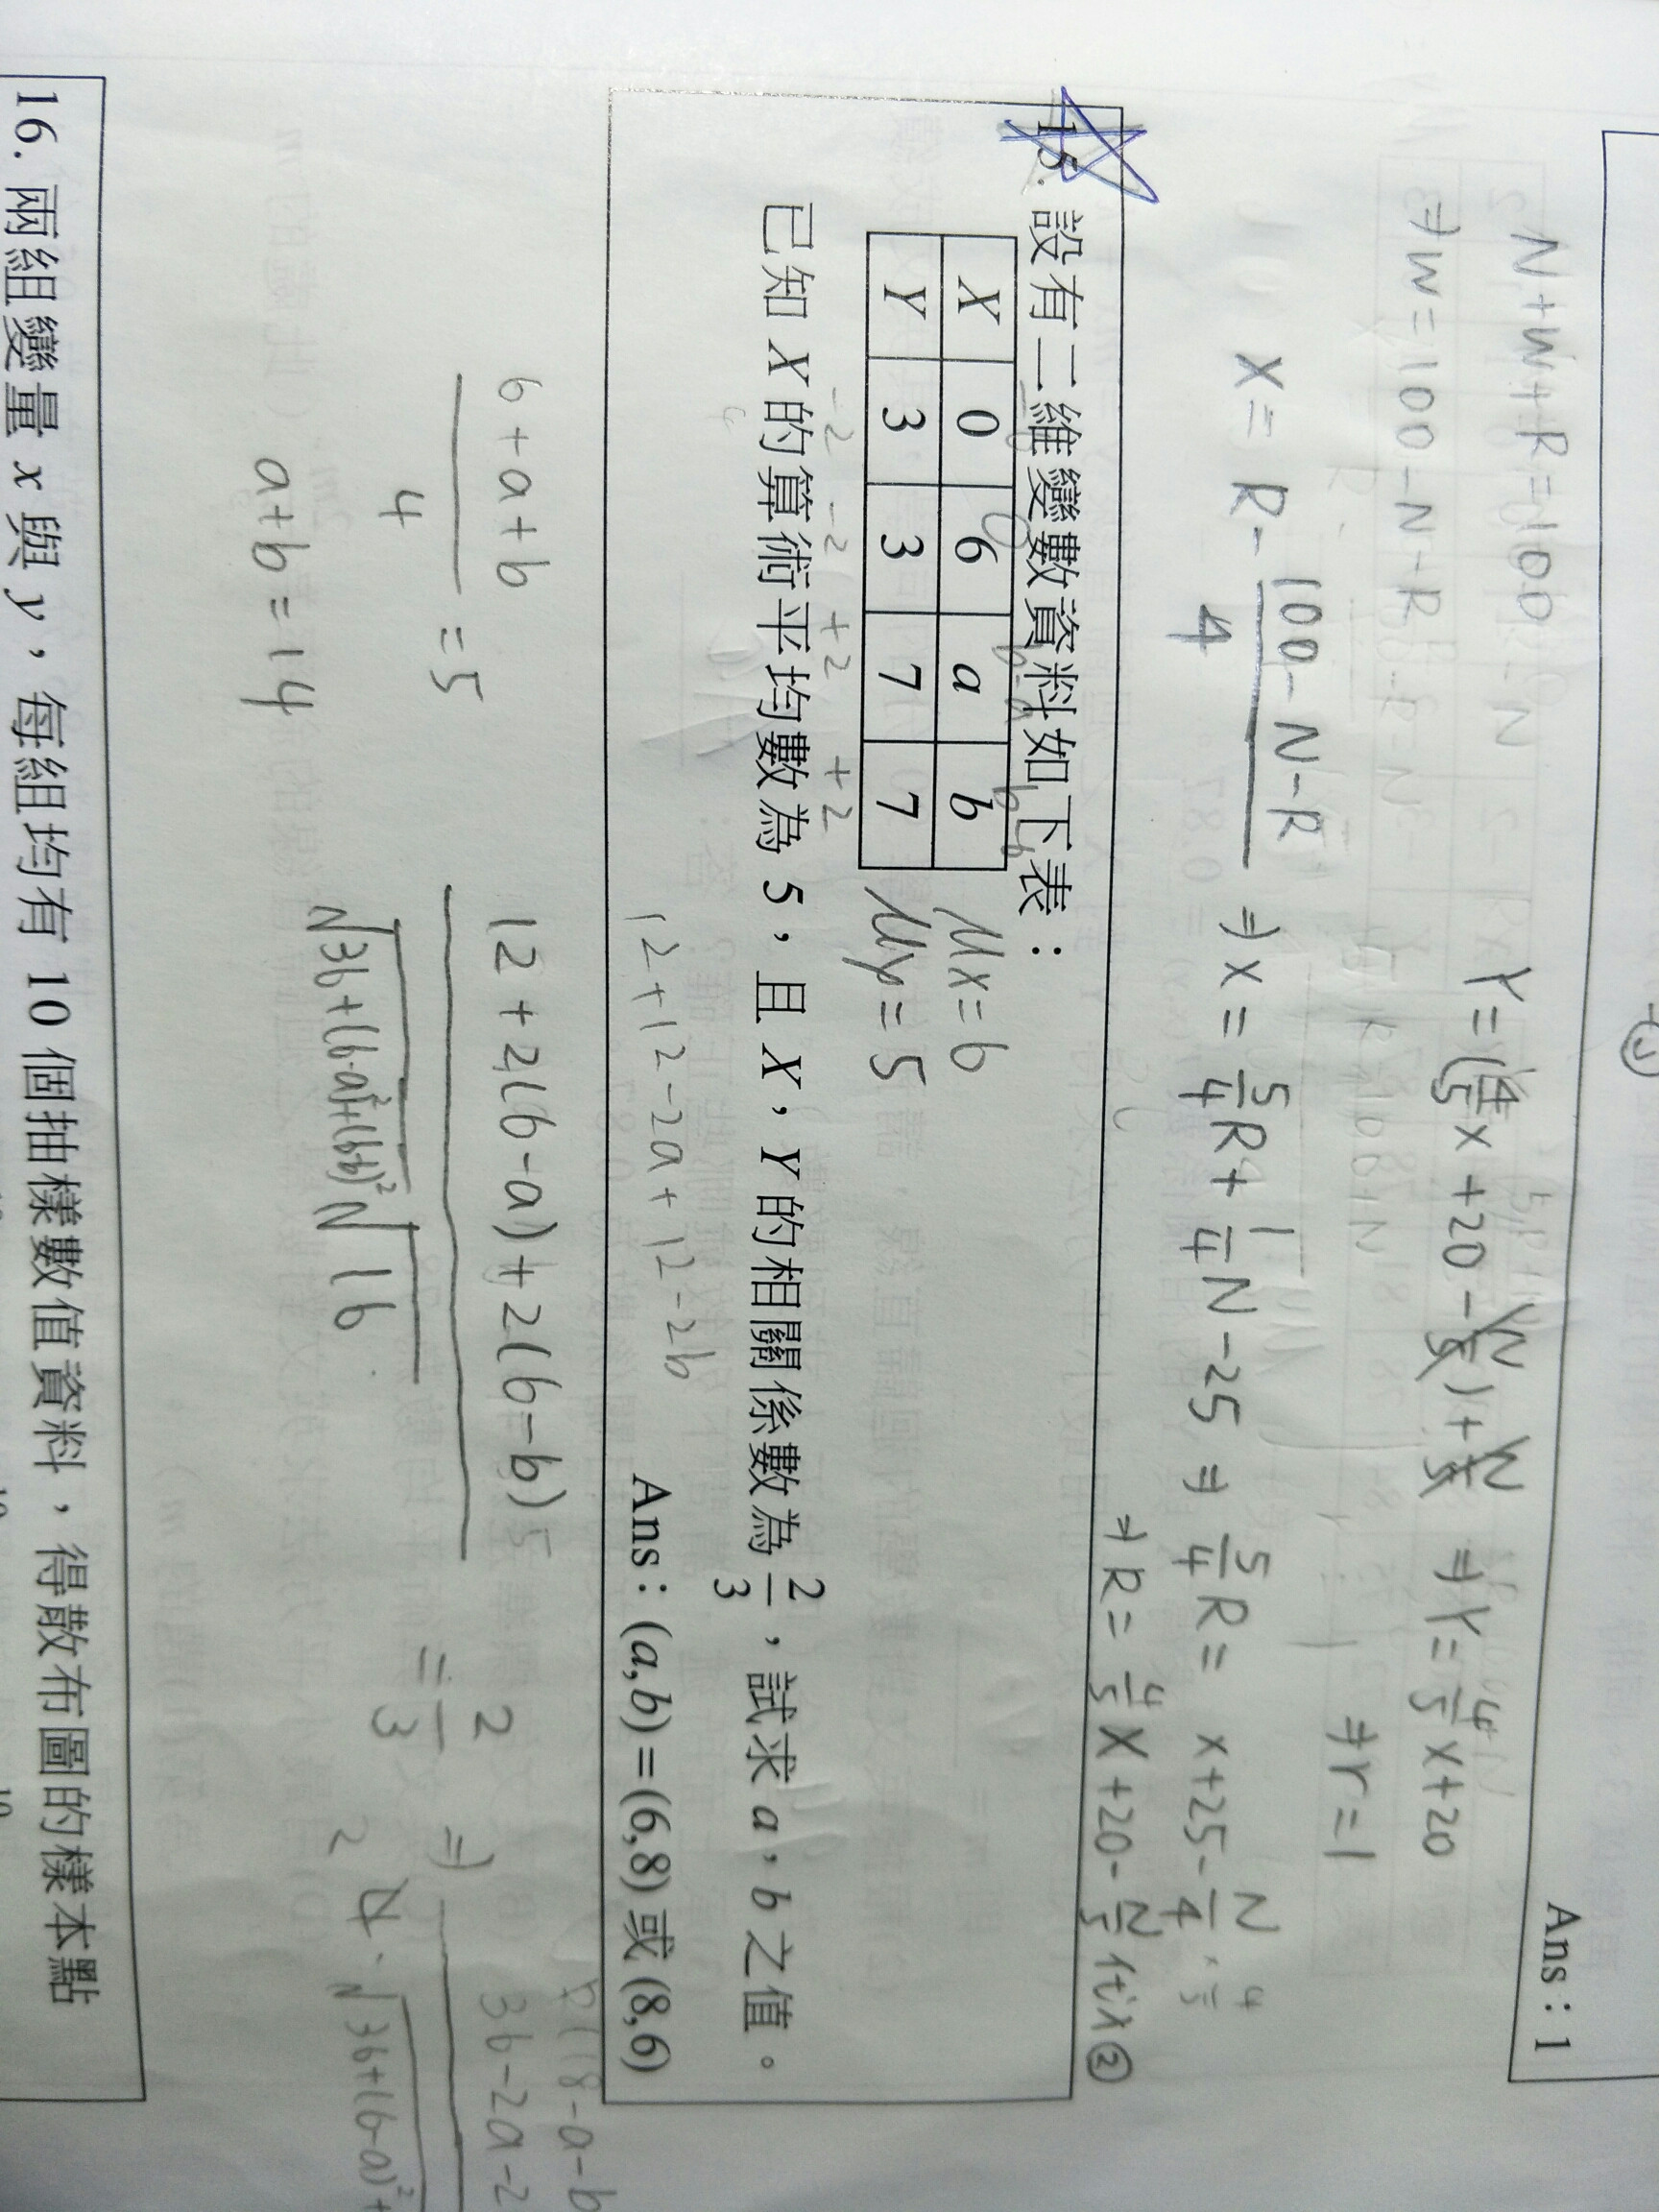 N+W+R=100
⇒W=100-N-R
Y=(4/5 X+20-N/5)+N/5 ⇒Y=4/5 X+20
⇒r=1
Ans：1
X=R-(100-N-R)/4 ⇒X=5/4 R+1/4 N-25 ⇒ 5/4 R= X+25-N/4
⇒R=4/5 X+20-N/5 代入②
15. 設有二維變數資料如下表：
X 0 6 a b
Y 3 3 7 7
μx=6
μy=5
-2 -2 +2 +2
已知 X 的算術平均數為 5，且 X，Y 的相關係數為 2/3，試求 a，b 之值。
12+12-2a+12-2b
Ans：(a,b)=(6,8) 或 (8,6)
(6+a+b)/4=5
a+b=14
12+2(6-a)+2(6-b)
√36+(6-a)²+(6-b)² √16
=2/3 ⇒
36-2a-2
4·√36+(6-a)²+
16. 兩組變量 x 與 y，每組均有 10 個抽樣數值資料，得散布圖的樣本點